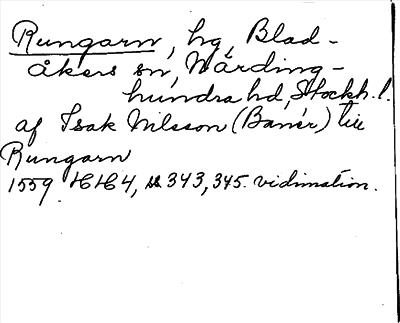 Rungarn, hg, Blad-
åkers sn, Närding-
hundra hd, Stockh. l.
af Isak Nilsson (Banér) till
Rungarn
1559. H H 4, s. 343, 345. vidimation.